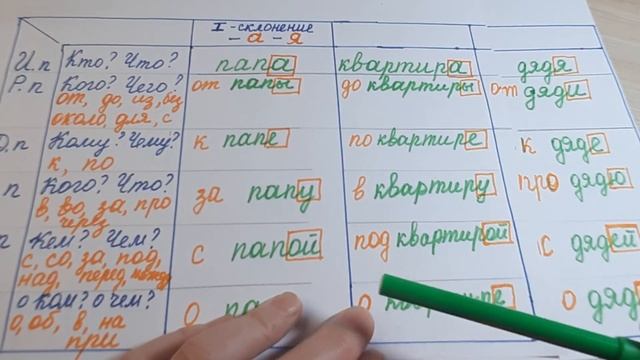 I-склонение
-а-я
И.п Кто? Что? папа квартира дядя
Р.п Кого? Чего? от папы до квартиры от дяди
от, до, из, без
около, для, с
Д.п Кому? Чему? к папе по квартире к дяде
к, по
п Кого? Что? за папу в квартиру про дядю
в, во, за, про
через
п Кем? Чем? с папой под квартирой с дядей
с, со, за, под,
над, перед, между
о ком? о чем? о па о
о, об, в, на
при